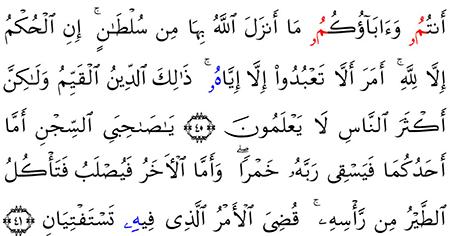 أَنتُمُۥ وَءَابَآؤُكُمُۥ مَا أَنزَلَ اَ۬للَّهُ بِهَا مِن سُلْطَٰنٍۚ إِنِ اِ۬لْحُكْمُ
إِلَّا لِلهِۚ أَمَرَ أَلَّا تَعْبُدُواْ إِلَّا إِيَّاهُۥۚ ذَٰلِكَ اَ۬لدِّينُ اُ۬لْقَيِّمُ وَلَٰكِنَّ
أَكْثَرَ اَ۬لنَّاسِ لَا يَعْلَمُونَ ۝٤٠ يَٰصَٰحِبَيِ اِ۬لسِّجْنِ أَمَّا
أَحَدُكُمَا فَيَسْقِى رَبَّهُۥ خَمْراًۖ وَأَمَّا اَ۬لْأٓخَرُ فَيُصْلَبُ فَتَأْكُلُ
اُ۬لطَّيْرُ مِن رَّأْسِهِۦۚ قُضِيَ اَ۬لْأَمْرُ اُ۬لَّذِى فِيهِۦ تَسْتَفْتِيَٰنِ ۝٤١